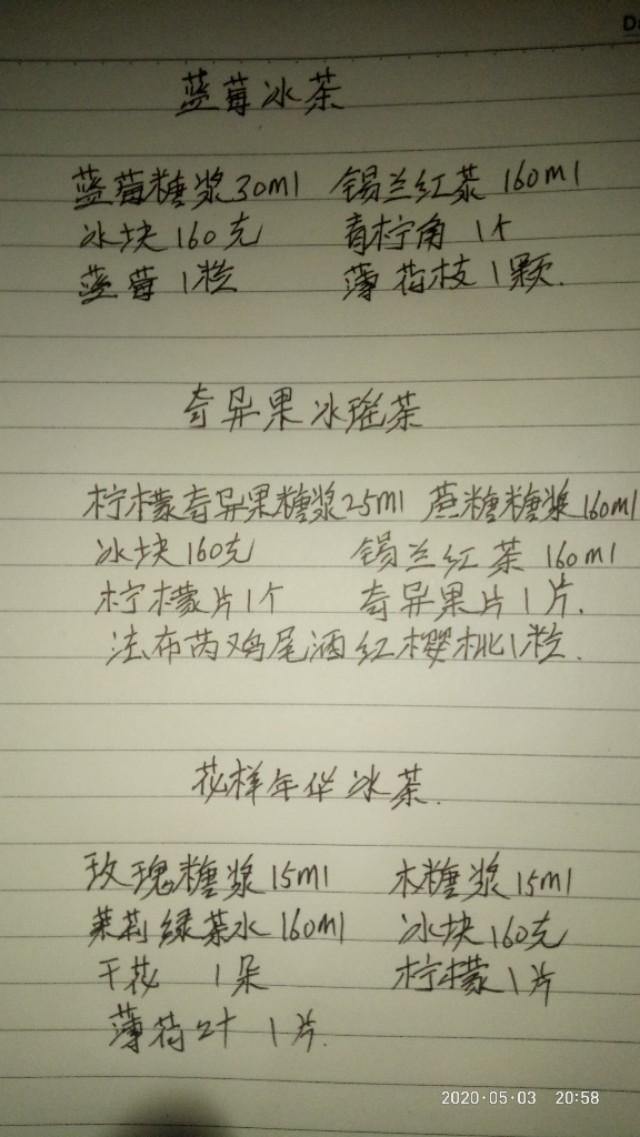 De
蓝莓冰茶
蓝莓糖浆30ml 锡兰红茶160ml
冰块160克 青柠角 1个
蓝莓 1粒 薄荷枝1颗.
奇异果冰瑶茶
柠檬奇异果糖浆25ml 蔗糖糖浆160ml
冰块160克 锡兰红茶 160ml
柠檬片1个 奇异果片1片.
法布芮鸡尾酒红樱桃1粒.
花样年华冰茶.
玫瑰糖浆15ml 木糖浆15ml
茉莉绿茶水160ml 冰块160克
干花 1朵 柠檬1片
薄荷叶 1片.
2020·05·03 20:58